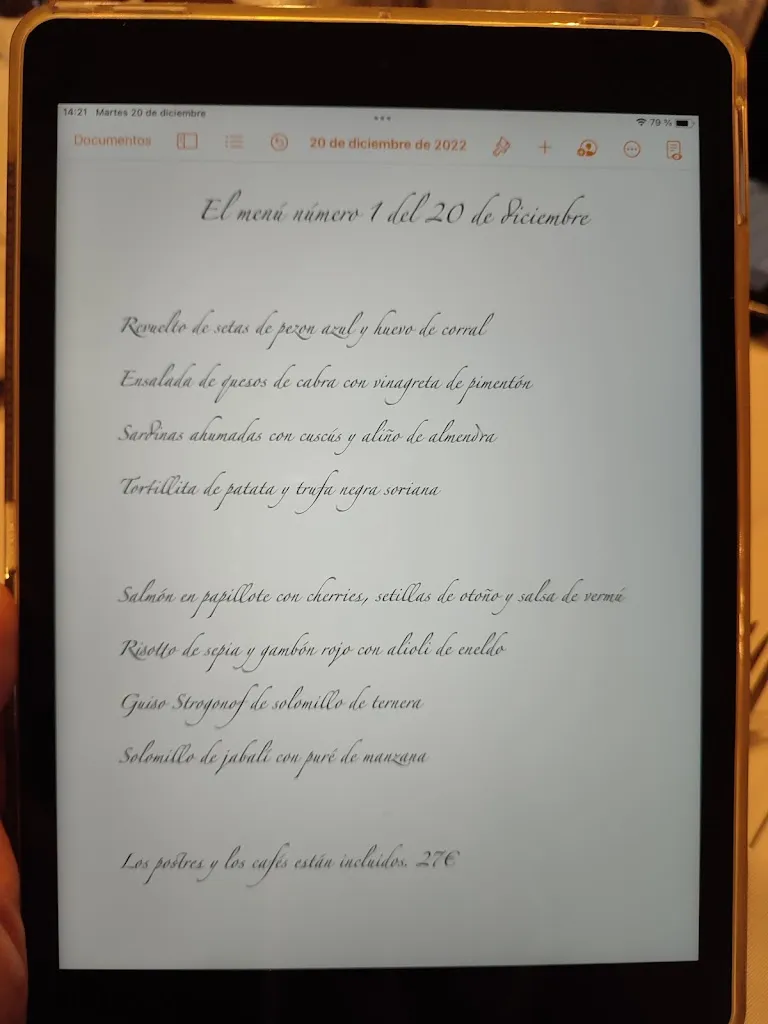 14:21 Martes 20 de diciembre
79 %
Documentos 20 de diciembre de 2022
El menú número 1 del 20 de diciembre
Revuelto de setas de pezon azul y huevo de corral
Ensalada de quesos de cabra con vinagreta de pimentón
Sardinas ahumadas con cuscús y aliño de almendra
Tortillita de patata y trufa negra soriana
Salmón en papillote con cherries, setillas de otoño y salsa de vermú
Risotto de sepia y gambón rojo con alioli de eneldo
Guiso Strogonof de solomillo de ternera
Solomillo de jabalí con puré de manzana
Los postres y los cafés están incluidos. 27€